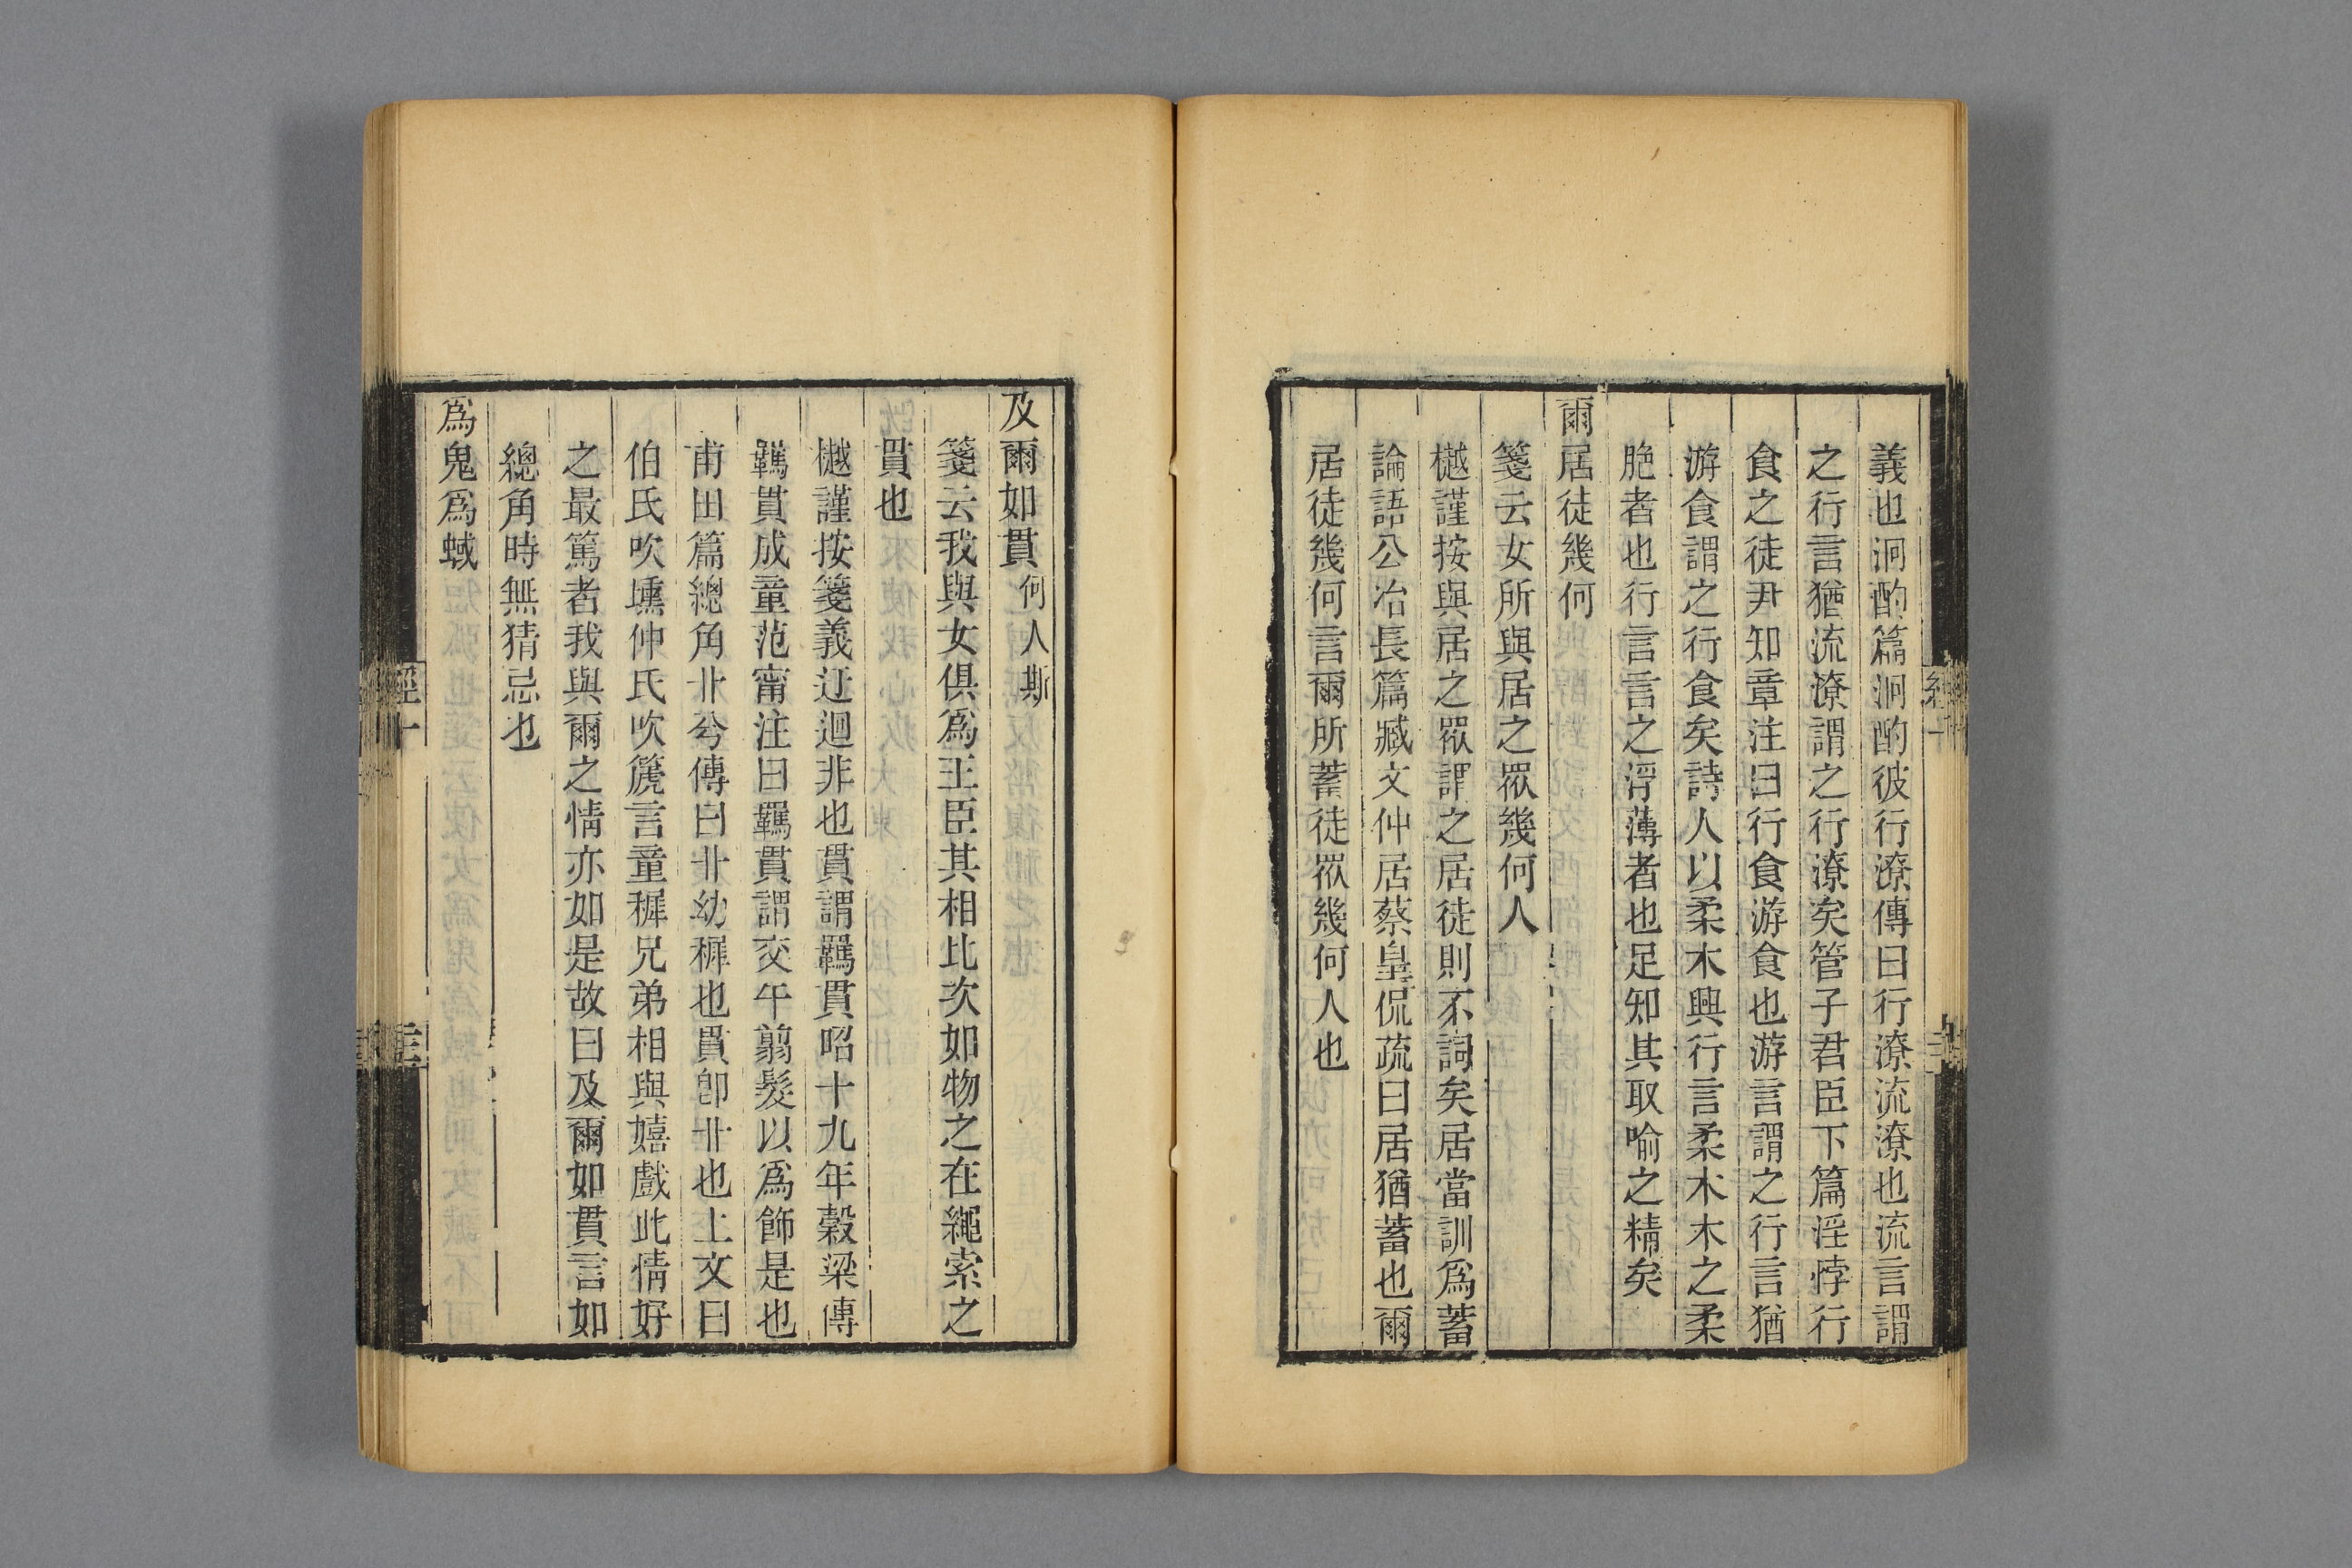 義也泂酌篇泂酌彼行潦傳曰行潦流潦也流言謂
之行言猶流潦謂之行潦矣管子君臣下篇淫悖行
食之徒尹知章注曰行食游食也游言謂之行言猶
游食謂之行食矣詩人以柔木興行言柔木木之柔
脆者也行言言之浮薄者也足知其取喻之精矣
爾居徒幾何
箋云女所與居之眾幾何人
樾謹按與居之眾謂之居徒則不詞矣居當訓爲蓄
論語公冶長篇臧文仲居蔡皇侃疏曰居猶蓄也爾
居徒幾何言爾所蓄徒眾幾何人也
及爾如貫 何人斯
箋云我與女俱爲王臣其相比次如物之在繩索之
貫也
樾謹按箋義迂迴非也貫謂羈貫昭十九年穀梁傳
羈貫成童范甯注曰羈貫謂交午翦髮以爲飾是也
甫田篇總角丱兮傳曰丱幼穉也貫卽丱也上文曰
伯氏吹壎仲氏吹篪言童穉兄弟相與嬉戲此情好
之最篤者我與爾之情亦如是故曰及爾如貫言如
總角時無猜忌也
爲鬼爲蜮